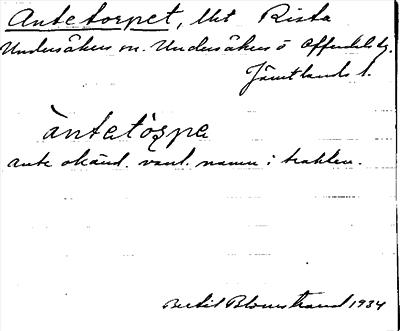 Antetorpet, lht Rista
Undersåkers sn. Undersåkers o Offerdals tg.
Jämtlands l.
àntetòrpe
ante okänd. vanl. namn i trakten.
Bertil Blomstrand 1934